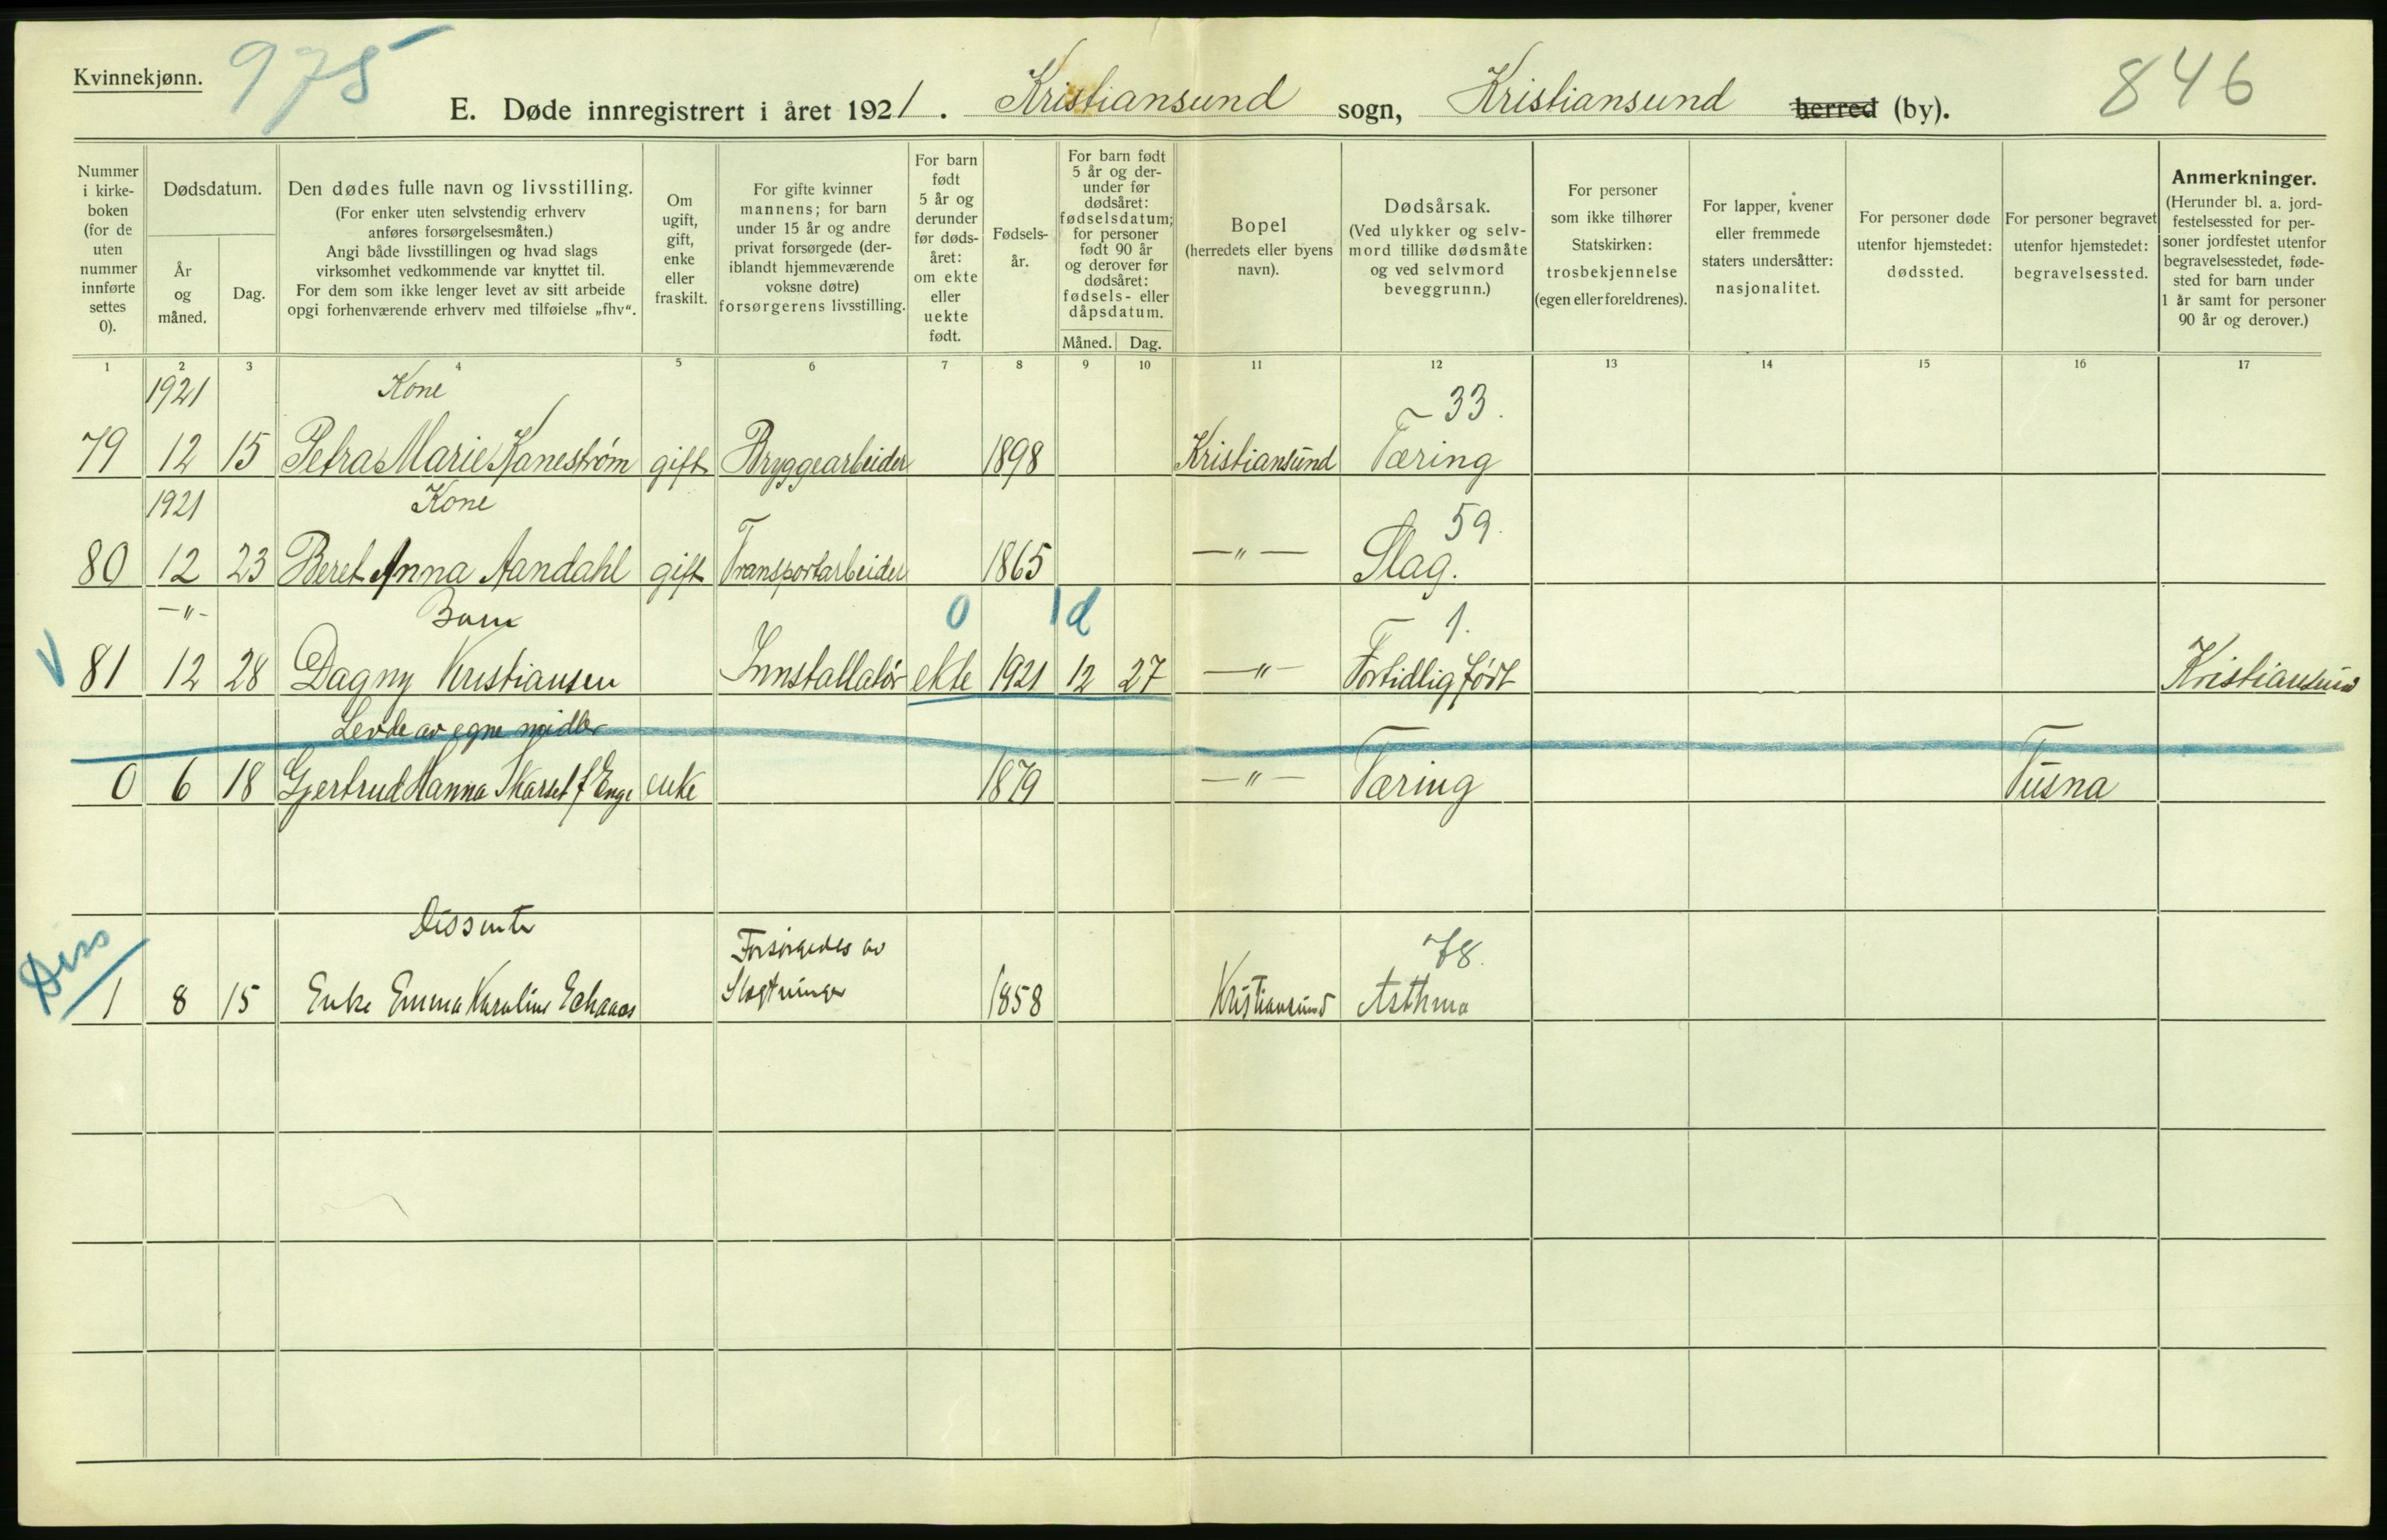 Kvinnekjønn.
975
E. Døde innregistrert i året 1921. Kristiansund sogn, Kristiansund herred (by).
846
Nummer
i kirke-
boken
(for de
uten
nummer
innførte
settes
0).
Dødsdatum.
År
og
måned.
Dag.
Den dødes fulle navn og livsstilling.
(For enker uten selvstendig erhverv
anføres forsørgelsesmåten.)
Angi både livsstillingen og hvad slags
virksomhet vedkommende var knyttet til.
For dem som ikke lenger levet av sitt arbeide
opgi forhenværende erhverv med tilføielse „fhv“.
Om
ugift,
gift,
enke
eller
fraskilt.
For gifte kvinner
mannens; for barn
under 15 år og andre
privat forsørgede (der-
iblandt hjemmeværende
voksne døtre)
forsørgerens livsstilling.
For barn
født
5 år og
derunder
før døds-
året:
om ekte
eller
uekte
født.
Fødsels-
år.
For barn født
5 år og der-
under før
dødsåret:
fødselsdatum;
for personer
født 90 år
og derover før
dødsåret:
fødsels- eller
dåpsdatum.
Måned. Dag.
Bopel
(herredets eller byens
navn).
Dødsårsak.
(Ved ulykker og selv-
mord tillike dødsmåte
og ved selvmord
beveggrunn.)
For personer
som ikke tilhører
Statskirken:
trosbekjennelse
(egen eller foreldrenes).
For lapper, kvener
eller fremmede
staters undersåtter:
nasjonalitet.
For personer døde
utenfor hjemstedet:
dødssted.
For personer begravet
utenfor hjemstedet:
begravelsessted.
Anmerkninger.
(Herunder bl. a. jord-
festelsessted for per-
soner jordfestet utenfor
begravelsesstedet, føde-
sted for barn under
1 år samt for personer
90 år og derover.)
1 2 3 4 5 6 7 8 9 10 11 12 13 14 15 16 17
1921 Kone 33.
79 12 15 Petra Marie Kanestrøm gift Bryggearbeider 1898 Kristiansund Tæring
1921 Kone 59.
80 12 23 Beret Anna Aandahl gift Transportarbeider 1865 —"— Slag.
—"— Barn 0 1d 1.
V 81 12 28 Dagny Kristiansen Innstallatør ekte 1921 12 27 —"— Fortidlig født Kristiansund
Levde av egne midler
0 6 18 Gjertrud Hanna Skarset f Enge enke 1879 —"— Tæring Tusna
Dissenter
Diss Forsørgedes av 78.
1 8 15 Enke Emma Karoline Slegtninger 1858 Kristiansund Asthma